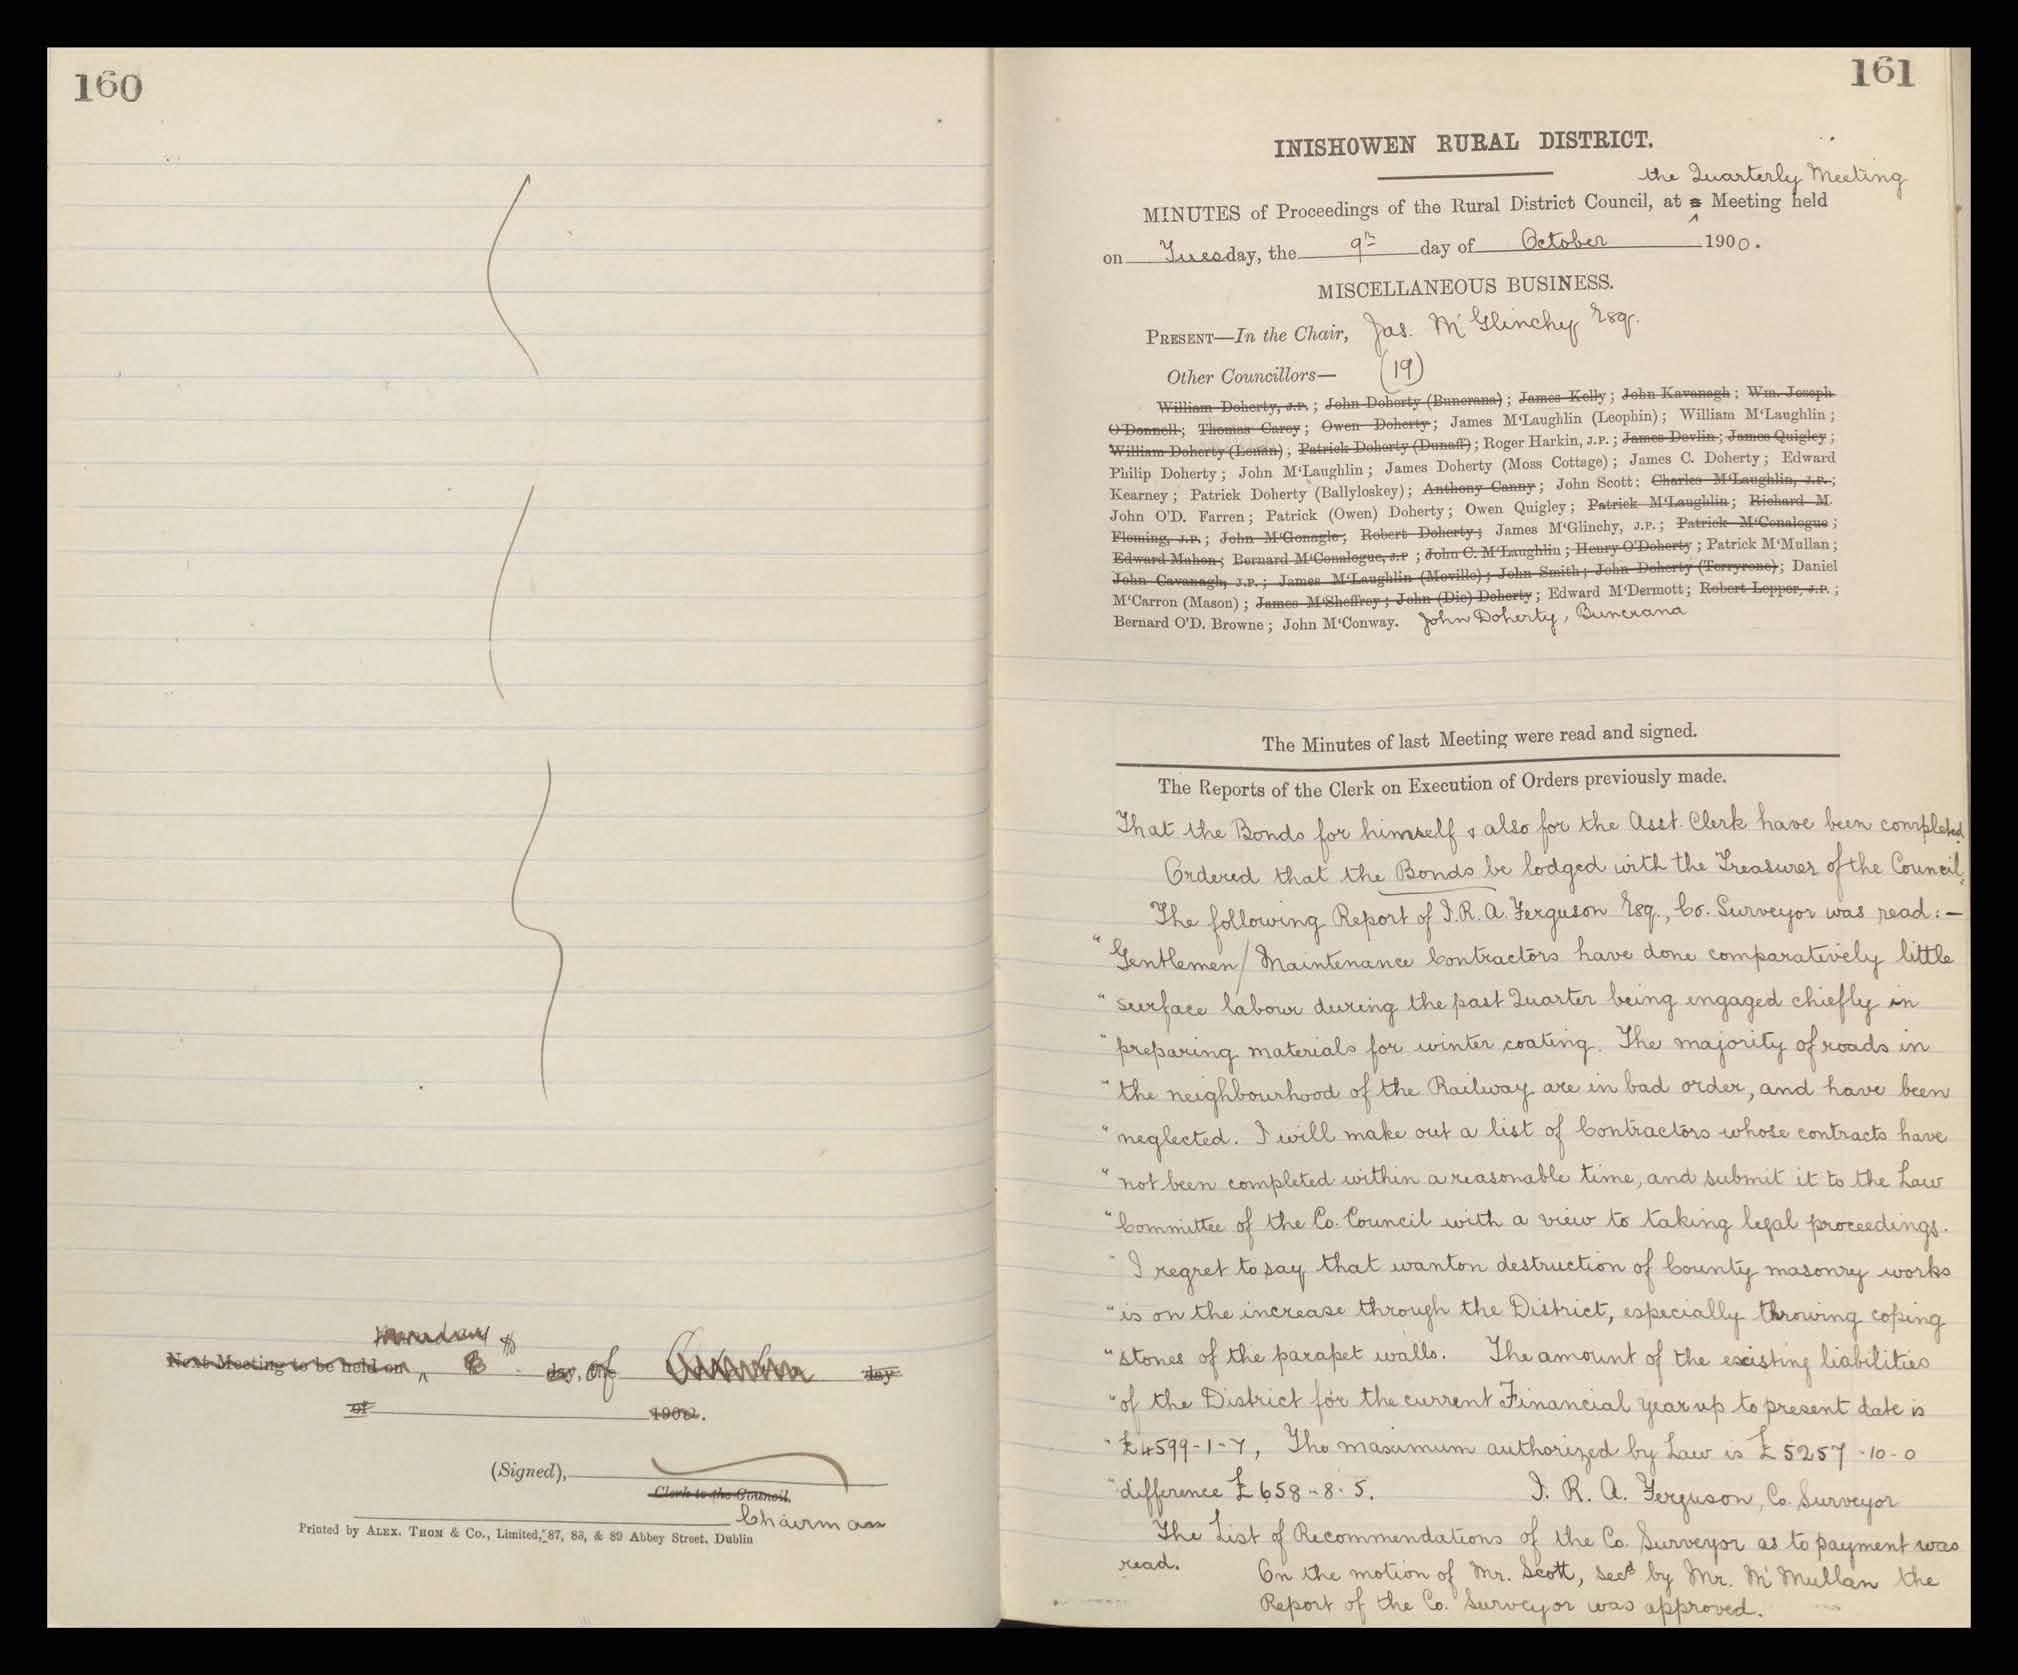 160
Monday 8th
Next Meeting to be held on day, the of October day
of 190 .
(Signed),
Clerk to the Council.
Chairman
Printed by ALEX. THOM & Co., Limited, 87, 88, & 89 Abbey Street, Dublin
161
INISHOWEN RURAL DISTRICT.
the Quarterly Meeting
MINUTES of Proceedings of the Rural District Council, at a Meeting held
on Tuesday, the 9th day of October 1900.
MISCELLANEOUS BUSINESS.
PRESENT—In the Chair, Jas. McGlinchy Esq.
Other Councillors— (19)
William Doherty, J.P.; John Doherty (Buncrana); James Kelly; John Kavanagh; Wm. Joseph
O'Donnell; Thomas Carey; Owen Doherty; James M'Laughlin (Leophin); William M'Laughlin;
William Doherty (Lenan); Patrick Doherty (Dunaff); Roger Harkin, J.P.; James Devlin; James Quigley;
Philip Doherty; John M'Laughlin; James Doherty (Moss Cottage); James C. Doherty; Edward
Kearney; Patrick Doherty (Ballyloskey); Anthony Canny; John Scott; Charles M'Laughlin, J.P.;
John O'D. Farren; Patrick (Owen) Doherty; Owen Quigley; Patrick M'Laughlin; Richard M.
Fleming, J.P.; John M'Gonagle; Robert Doherty; James M'Glinchy, J.P.; Patrick M'Conalogue;
Edward Mahon; Bernard M'Conalogue, J.P; John C. M'Laughlin; Henry O'Doherty; Patrick M'Mullan;
John Cavanagh, J.P.; James M'Laughlin (Moville); John Smith; John Doherty (Terryrone); Daniel
M'Carron (Mason); James M'Sheffrey; John (Die) Doherty; Edward M'Dermott; Robert Lepper, J.P.;
Bernard O'D. Browne; John M'Conway. John Doherty, Buncrana
The Minutes of last Meeting were read and signed.
The Reports of the Clerk on Execution of Orders previously made.
That the Bonds for himself & also for the Asst. Clerk have been completed.
Ordered that the Bonds be lodged with the Treasurer of the Council.
The following Report of I. R. A. Ferguson Esq., Co. Surveyor was read:—
"Gentlemen/ Maintenance Contractors have done comparatively little
"surface labour during the past Quarter being engaged chiefly in
"preparing materials for winter coating. The majority of roads in
"the neighbourhood of the Railway are in bad order, and have been
"neglected. I will make out a list of Contractors whose contracts have
"not been completed within a reasonable time, and submit it to the Law
"Committee of the Co. Council with a view to taking legal proceedings.
"I regret to say that wanton destruction of County masonry works
"is on the increase through the District, especially throwing coping
"stones of the parapet walls. The amount of the existing liabilities
"of the District for the current Financial year up to present date is
"£4599-1-7, The maximum authorized by Law is £5257-10-0
"difference £658-8-5. I. R. A. Ferguson, Co. Surveyor
The List of Recommendations of the Co. Surveyor as to payment was
read. On the motion of Mr. Scott, secd by Mr. McMullan the
Report of the Co. Surveyor was approved.